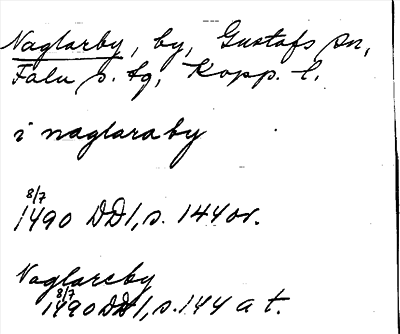 Naglarby, by, Gustafs sn,
Falu s. tg, Kopp. l.
i naglaraby
8/7
1490 DD1, s. 144 ov.
Naglareby
8/7
1490 DD1, s. 144 a t.